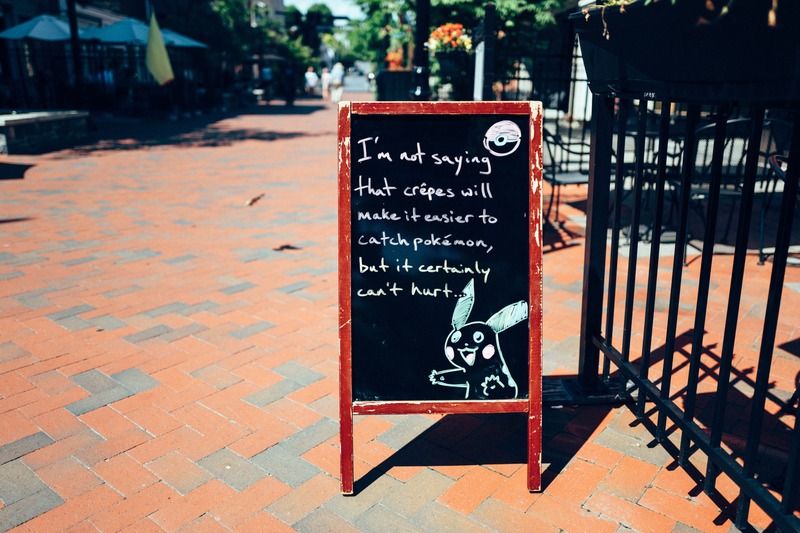 I'm not saying
that crêpes will
make it easier to
catch pokémon,
but it certainly
can't hurt...